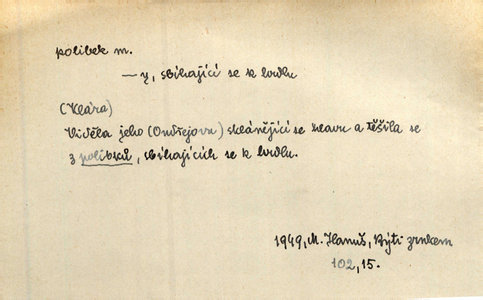 polibek m.
—y, sbíhající se k hrdlu
(Klára)
Viděla jeho (Ondřejovu) sklánějící se hlavu a těšila se
z polibků, sbíhajících se k hrdlu.
1949, M. Hanuš, Býti zrnkem
102, 15.